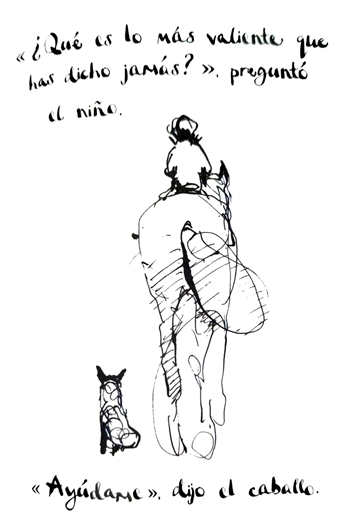 «¿Qué es lo más valiente que
has dicho jamás?», preguntó
el niño.
«Ayúdame», dijo el caballo.